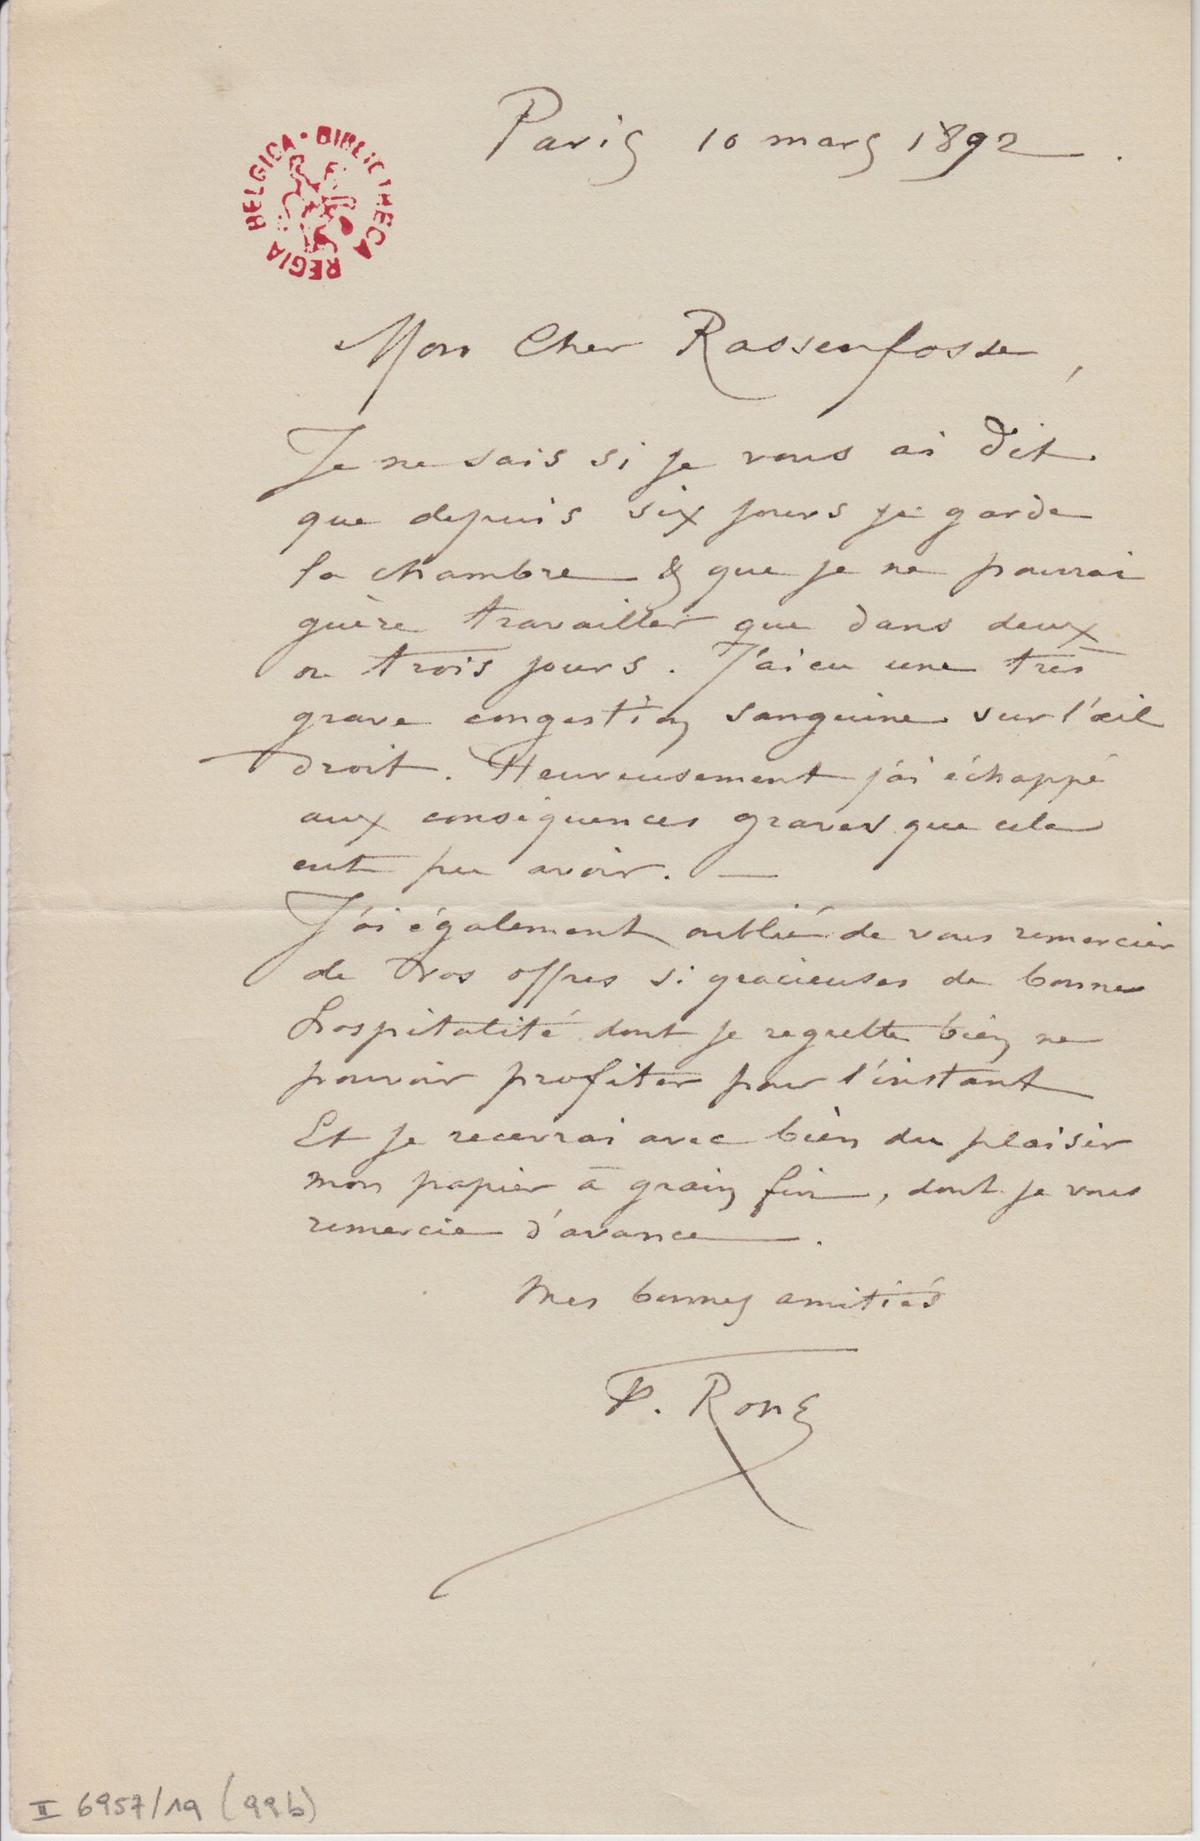 Paris 10 mars 1892.
REGIA BELGICA · BIBLIOTHECA
Mon Cher Rassenfosse,
Je ne sais si je vous ai dit
que depuis six jours je garde
la chambre & que je ne pourrai
guère travailler que dans deux
ou trois jours. J'ai eu une très
grave congestion sanguine sur l'œil
droit. Heureusement j'ai échappé
aux conséquences graves que cela
eut pu avoir. —
J'ai également oublié de vous remercier
de vos offres si gracieuses de bonne
hospitalité dont je regrette bien ne
pouvoir profiter pour l'instant
Et je recevrai avec bien du plaisir
mon papier à grain fin, dont je vous
remercie d'avance.
Mes bonnes amitiés
F. Rops
II 6957/19 (99b)